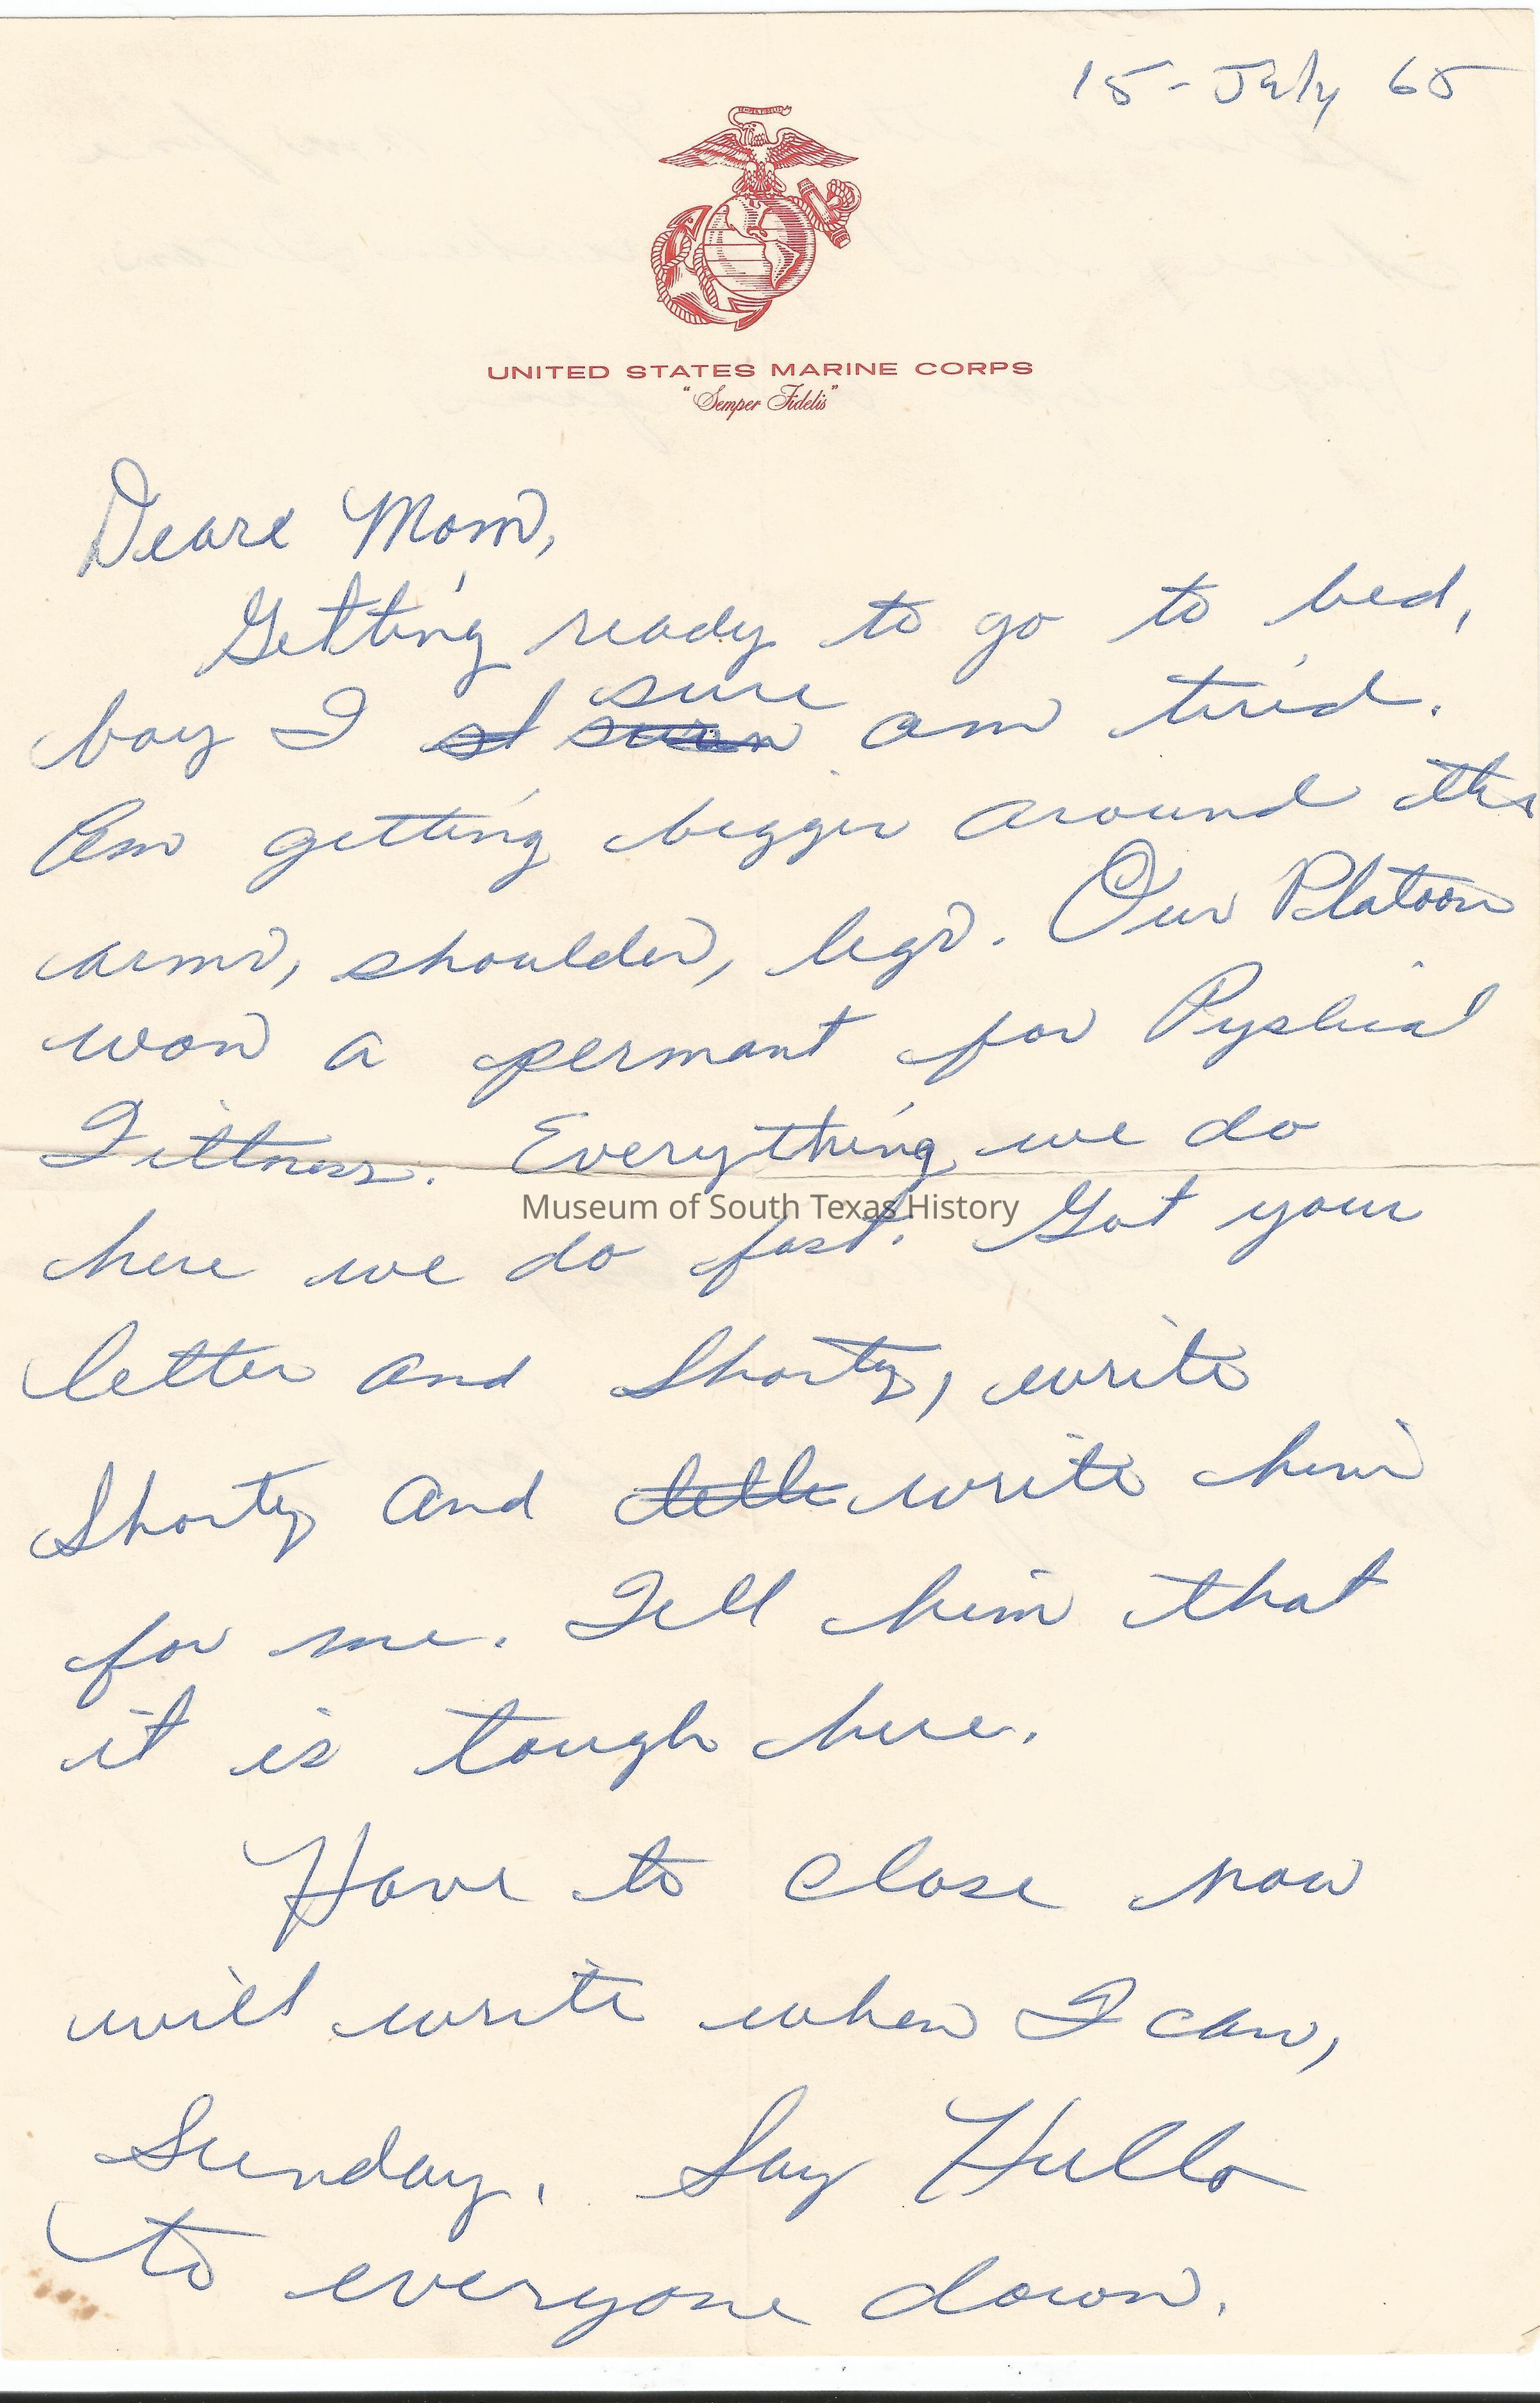 15-July 65
UNITED STATES MARINE CORPS
"Semper Fidelis"
Deare Mom,
Getting ready to go to bed,
boy I sure am tried.
Am getting bigger around the
arms, shoulder, legs. Our Platoon
won a permant for Pyshical
Fittness. Everything we do
Museum of South Texas History
here we do fast. Got your
letter and Shorty, write
Shorty and write him
for me. Tell him that
it is tough here.
Have to close now
will write when I can,
Sunday. Say Hello
to everyone down.